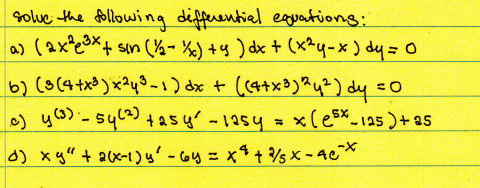 solve the following differential equations:
a) (2x²e³ˣ + sin (½ - ⅟ₓ) + y) dx + (x²y - x) dy = 0
b) (3(4+x³) x²y³ - 1) dx + ((4+x³)²y²) dy = 0
c) y⁽³⁾ - 5y⁽²⁾ + 25y' - 125y = x(e⁵ˣ - 125) + 25
d) xy" + 2(x-1)y' - 6y = x⁴ + 2/5 x - 4e⁻ˣ